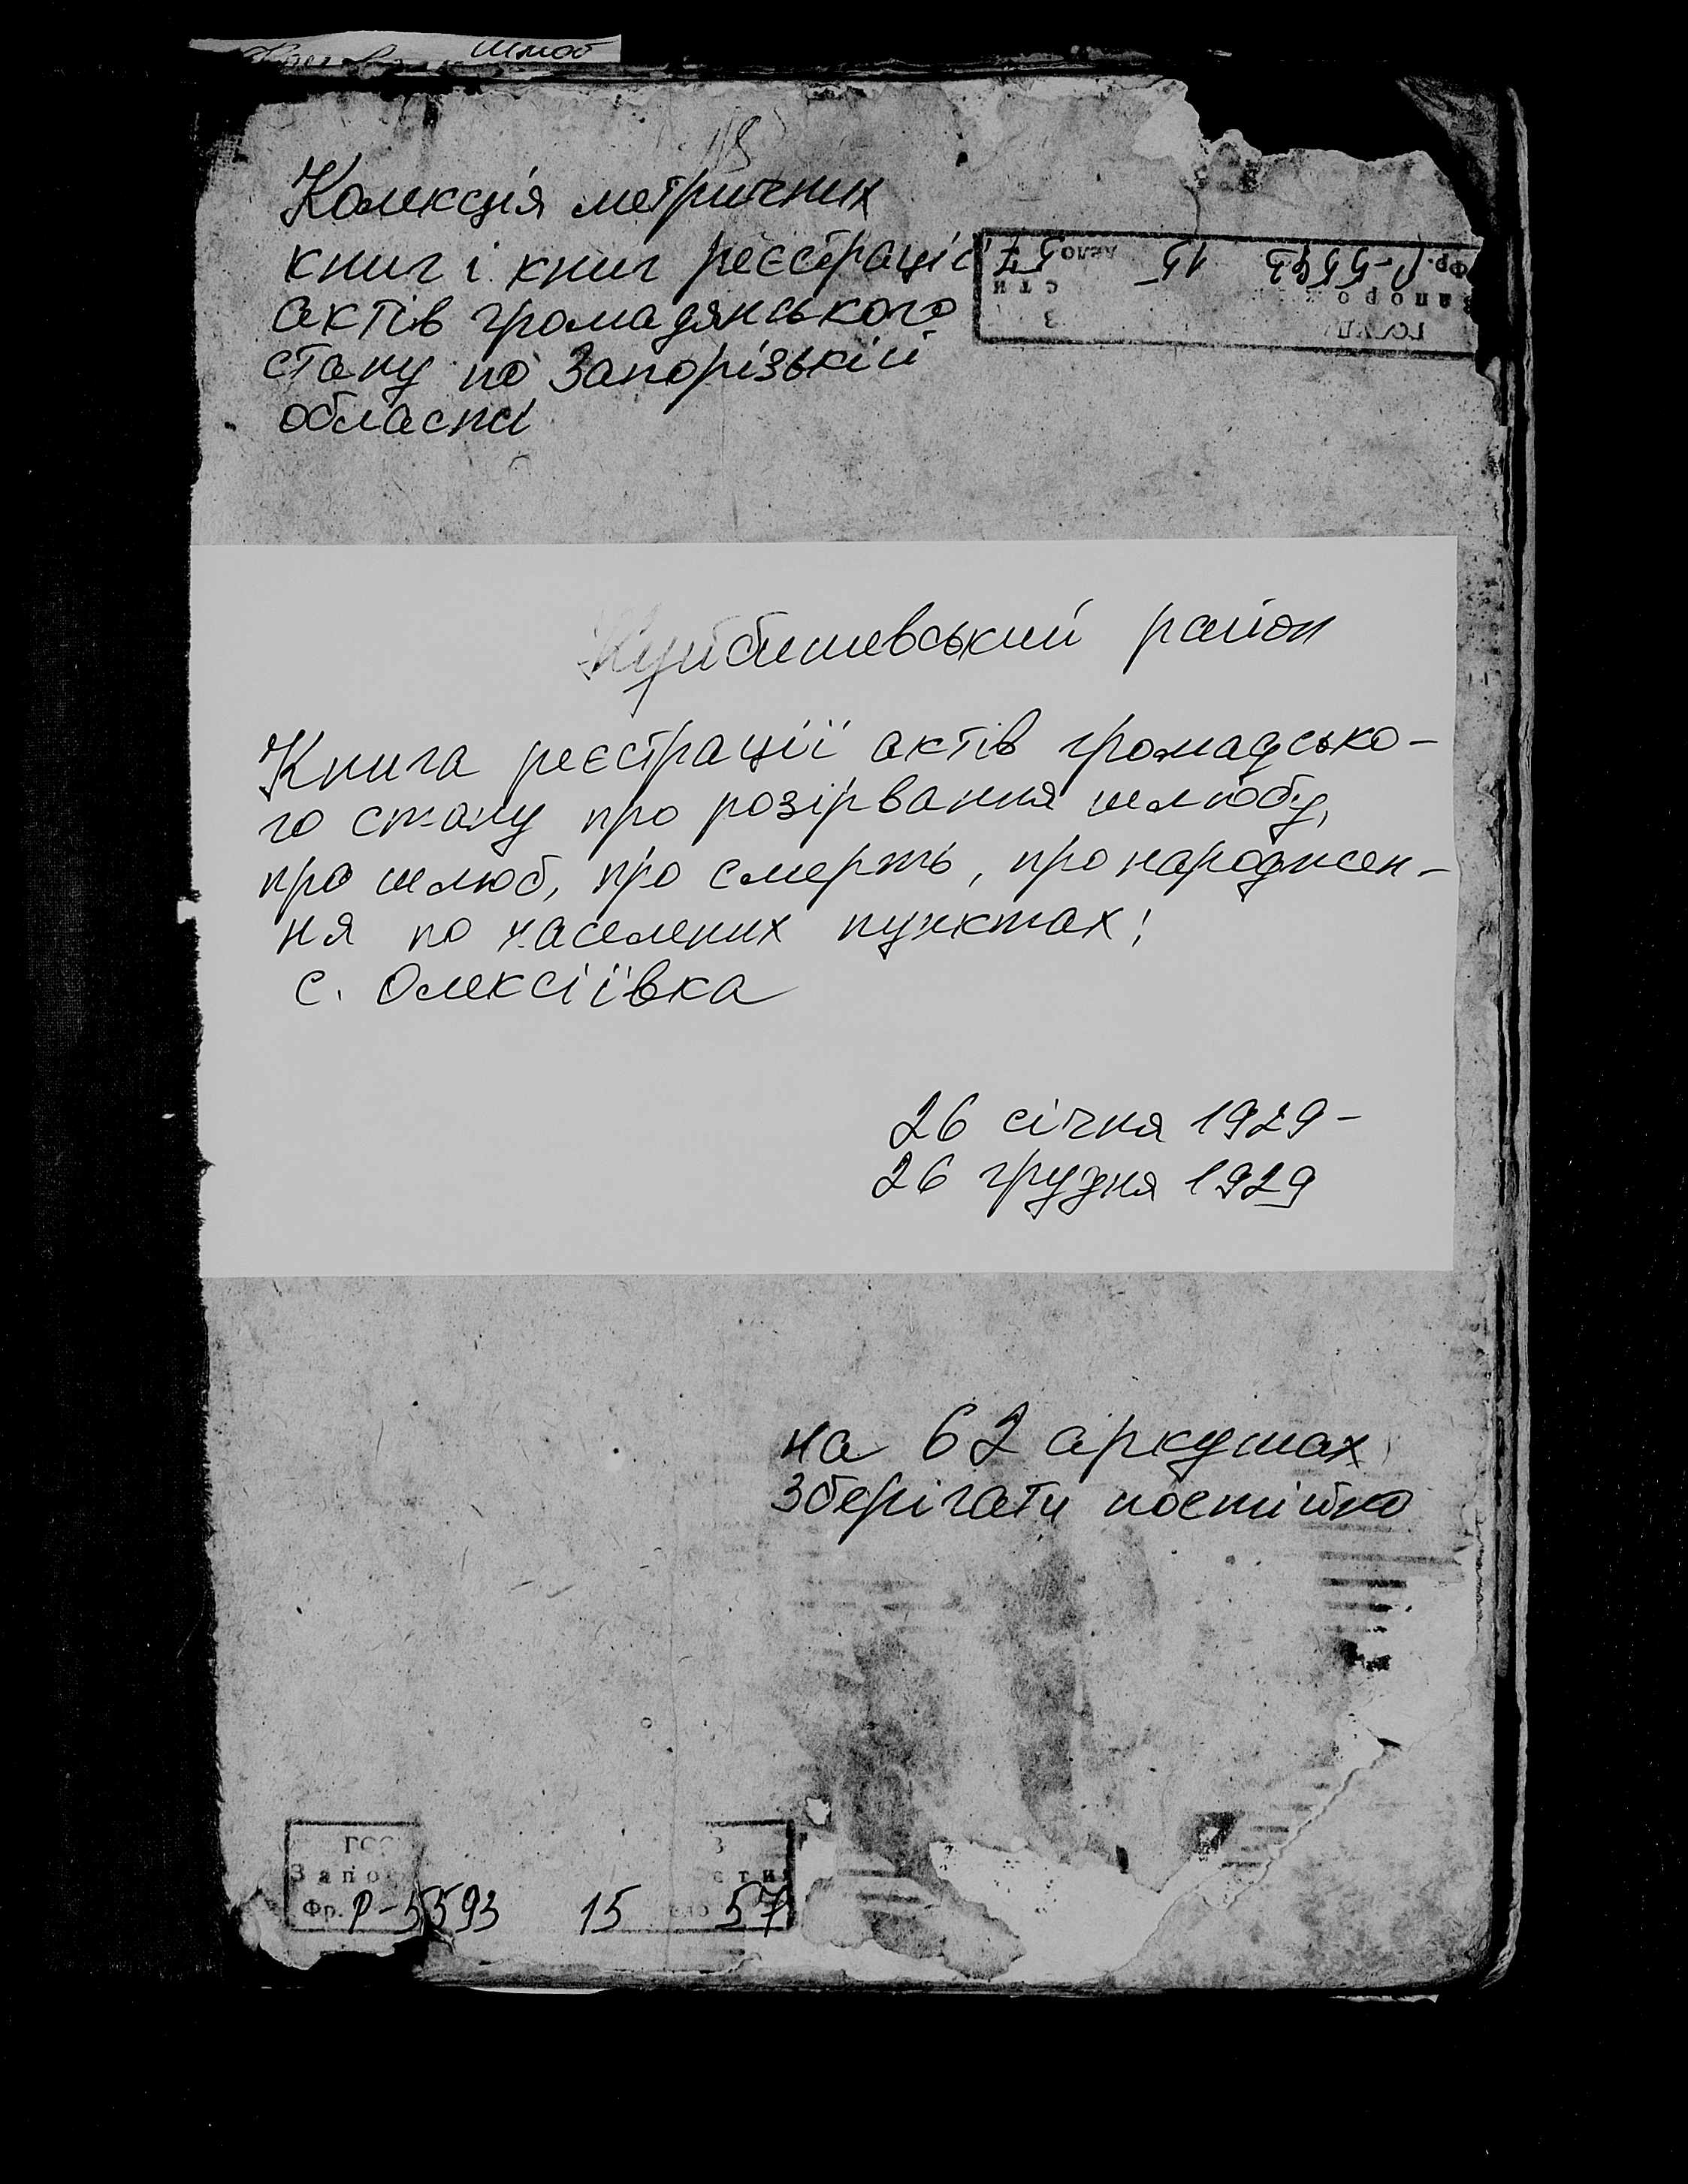 шлюб
Колекція метричних
книг і книг реєстрації
актів громадянського
стану по Запорізькій
області
Фр. Р-5593 15 дело 57
Куйбишевський район
Книга реєстрації актів громадсько-
го стану про розірвання шлюбу,
про шлюб, про смерть, про народжен-
ня по населених пунктах:
с. Олексіївка
26 січня 1929-
26 грудня 1929
на 62 аркушах
зберігати постійно
Фр. Р-5593 15 57